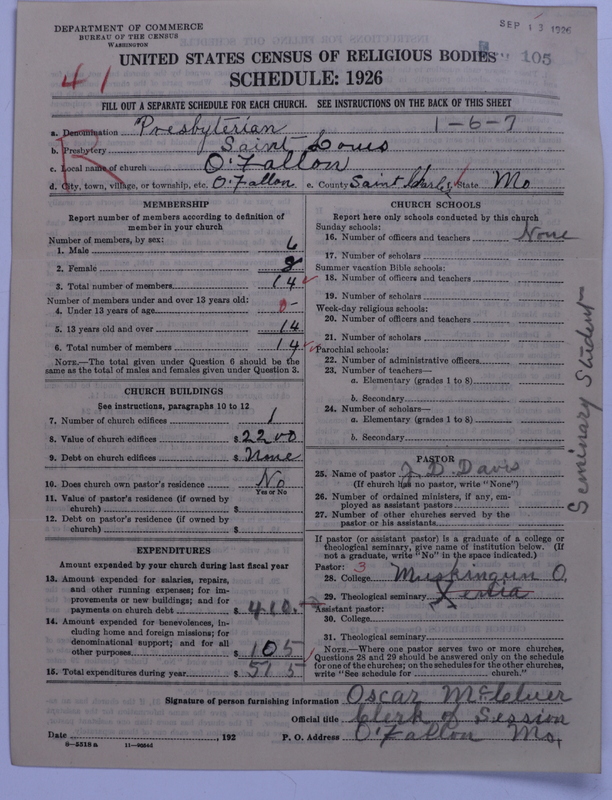 DEPARTMENT OF COMMERCE
BUREAU OF THE CENSUS
WASHINGTON
SEP 13 1926
105
UNITED STATES CENSUS OF RELIGIOUS BODIES
SCHEDULE: 1926
41
FILL OUT A SEPARATE SCHEDULE FOR EACH CHURCH. SEE INSTRUCTIONS ON THE BACK OF THIS SHEET
R
a. Denomination Presbyterian 1-6-7
b. Presbytery Saint Louis
c. Local name of church O'Fallon
d. City, town, village, or township, etc. O'Fallon e. County Saint Charles State Mo
MEMBERSHIP
Report number of members according to definition of
member in your church
Number of members, by sex:
1. Male 6
2. Female 8
3. Total number of members 14
Number of members under and over 13 years old:
4. Under 13 years of age 0-
5. 13 years old and over 14
6. Total number of members 14
NOTE.—The total given under Question 6 should be the
same as the total of males and females given under Question 3.
CHURCH BUILDINGS
See instructions, paragraphs 10 to 12
7. Number of church edifices 1
8. Value of church edifices $ 2200
9. Debt on church edifices $ None
10. Does church own pastor's residence No
Yes or No
11. Value of pastor's residence (if owned by
church) $
12. Debt on pastor's residence (if owned by
church) $
EXPENDITURES
Amount expended by your church during last fiscal year
13. Amount expended for salaries, repairs,
and other running expenses; for im-
provements or new buildings; and for
payments on church debt $ 410.
14. Amount expended for benevolences, in-
cluding home and foreign missions; for
denominational support; and for all
other purposes $ 105
15. Total expenditures during year $ 515
CHURCH SCHOOLS
Report here only schools conducted by this church
Sunday schools:
16. Number of officers and teachers None
17. Number of scholars
Summer vacation Bible schools:
18. Number of officers and teachers
19. Number of scholars
Week-day religious schools:
20. Number of officers and teachers
21. Number of scholars
Parochial schools:
22. Number of administrative officers
23. Number of teachers—
a. Elementary (grades 1 to 8)
b. Secondary
24. Number of scholars—
a. Elementary (grades 1 to 8)
b. Secondary
Seminary Student
PASTOR
25. Name of pastor J. D. Davis
(If church has no pastor, write "None")
26. Number of ordained ministers, if any, em-
ployed as assistant pastors
27. Number of other churches served by the
pastor or his assistants
If pastor (or assistant pastor) is a graduate of a college or
theological seminary, give name of institution below. (If
not a graduate, write "No" in the space indicated.)
Pastor: 3
28. College Muskingum O.
29. Theological seminary Xenia
Assistant pastor:
30. College
31. Theological seminary
NOTE.—Where one pastor serves two or more churches,
Questions 28 and 29 should be answered only on the schedule
for one of the churches; on the schedules for the other churches,
write "See schedule for church."
Signature of person furnishing information Oscar McCluer
Official title Clerk of Session
Date , 192 P. O. Address O'Fallon Mo,
8-5518 a